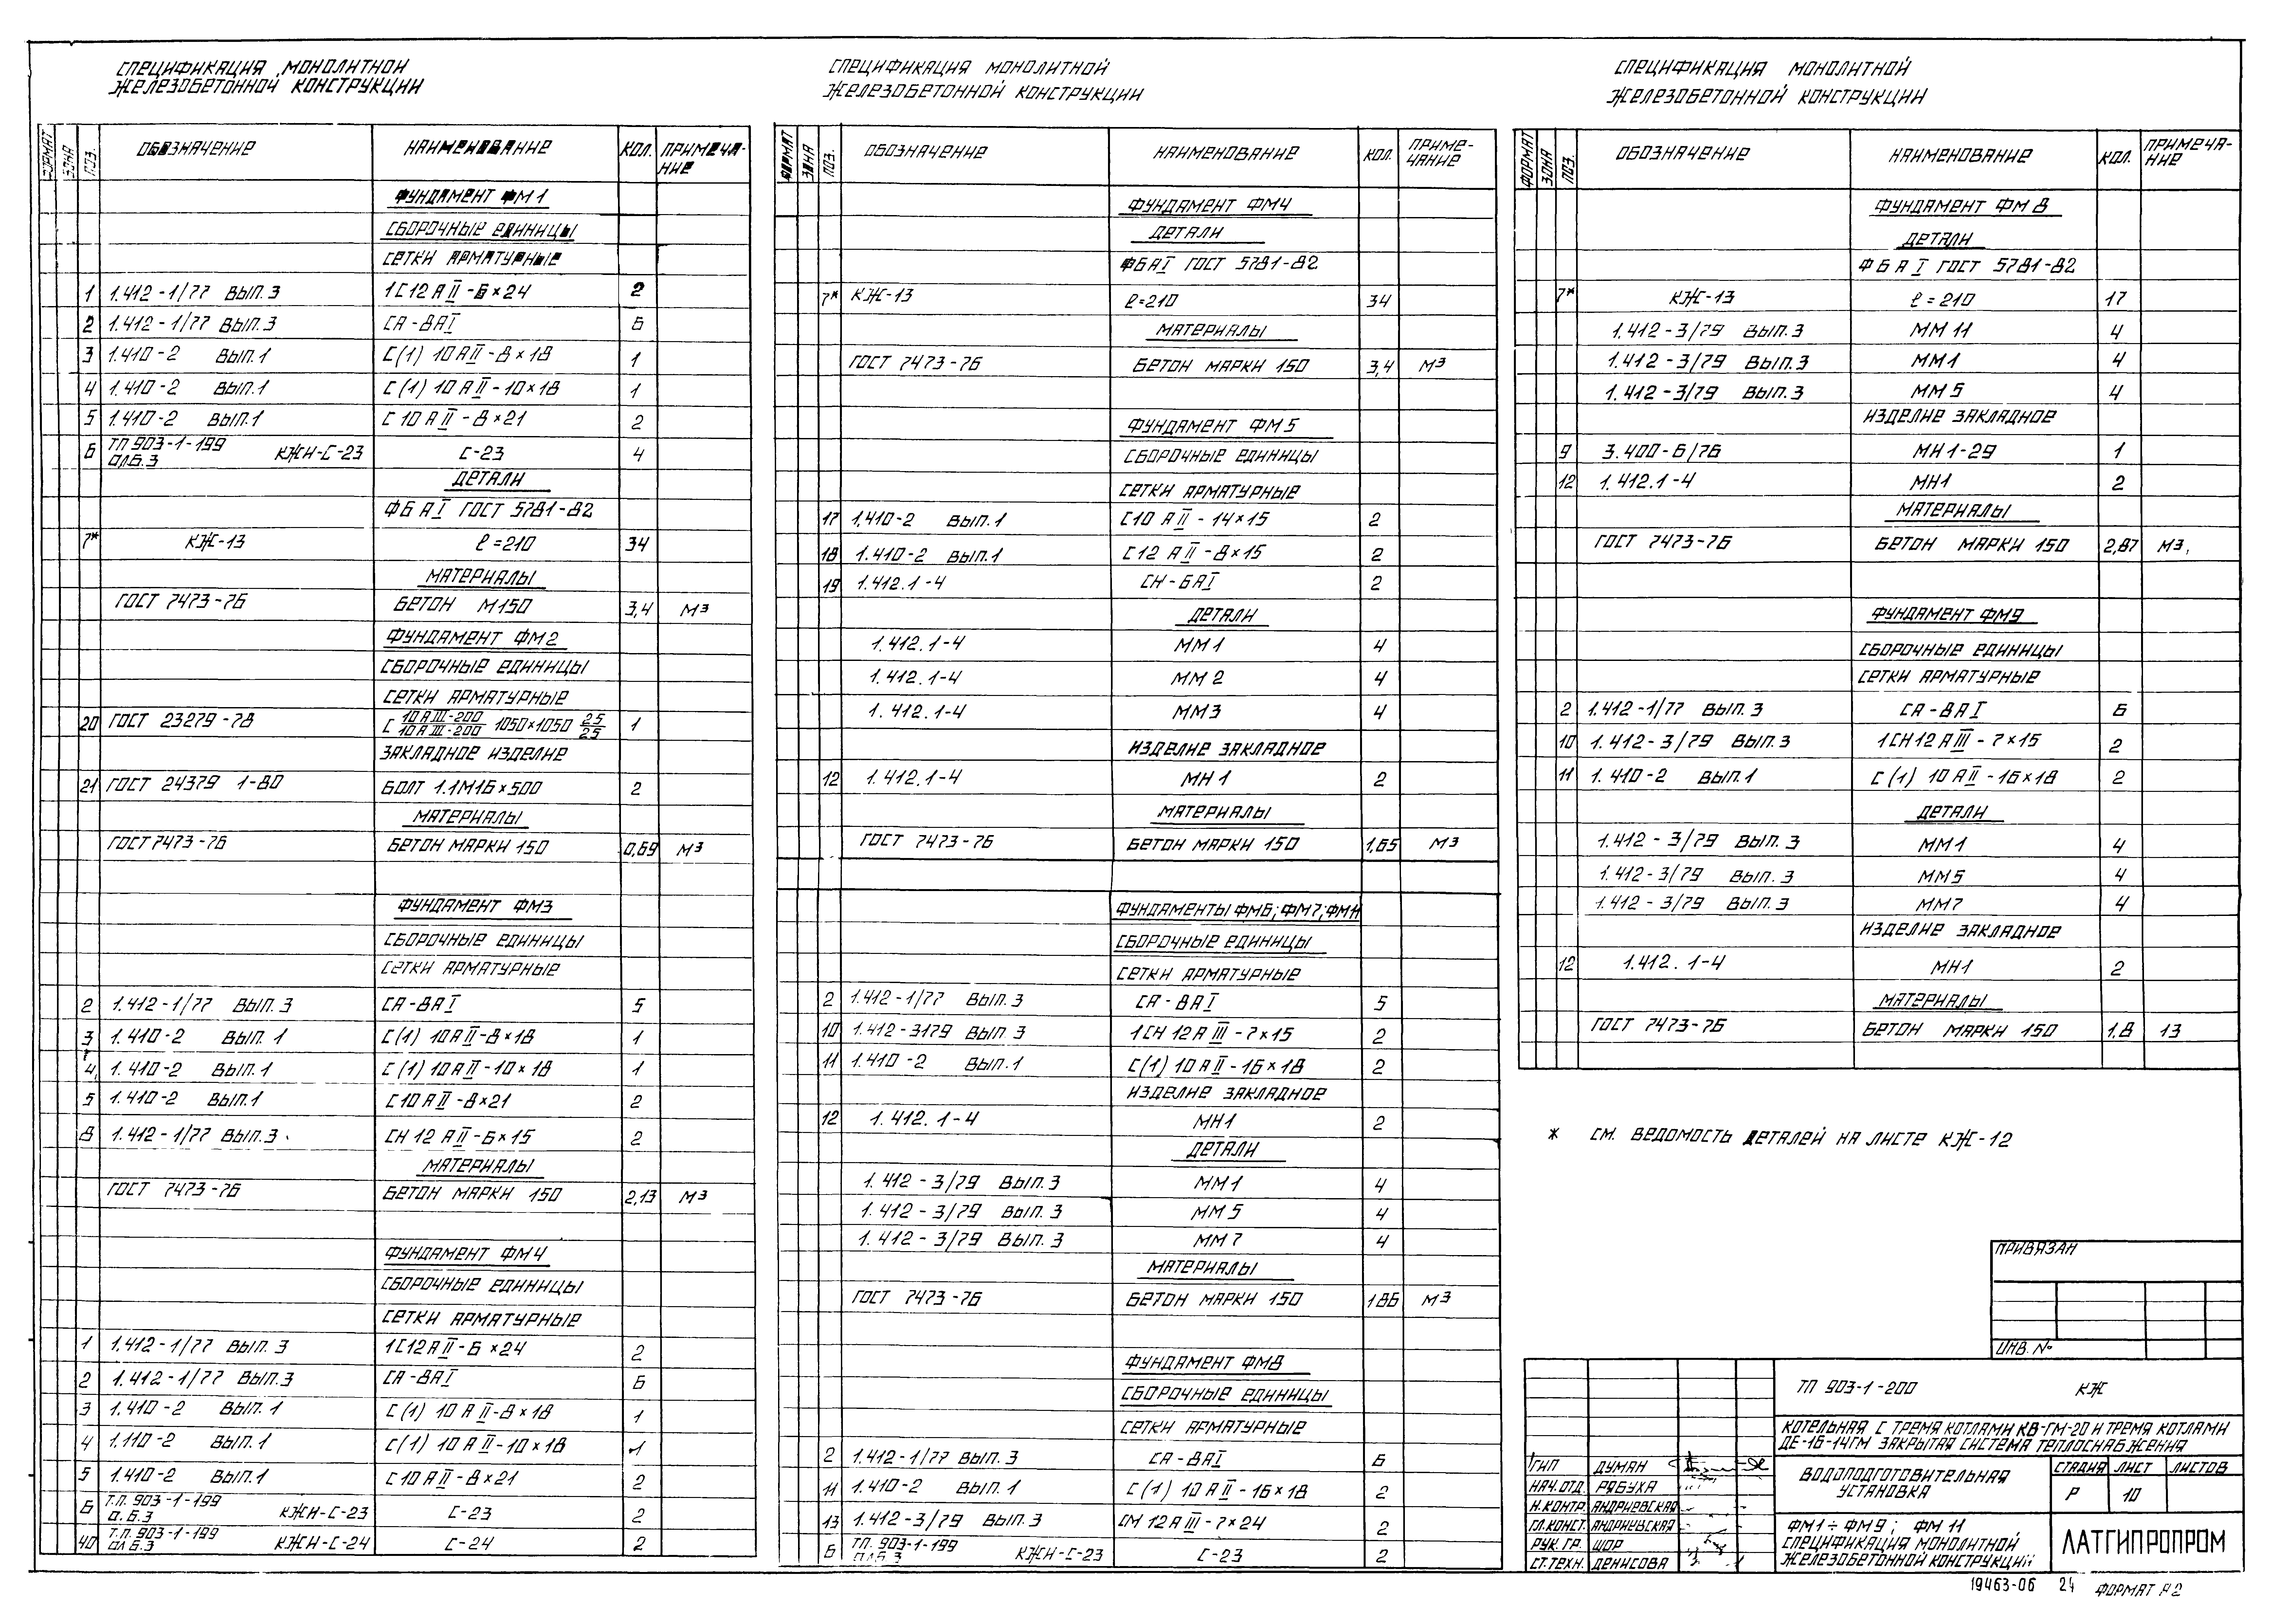 СПЕЦИФИКАЦИЯ МОНОЛИТНОЙ
ЖЕЛЕЗОБЕТОННОЙ КОНСТРУКЦИИ
ФОРМАТ ЗОНА ПОЗ. ОБОЗНАЧЕНИЕ НАИМЕНОВАНИЕ КОЛ. ПРИМЕЧА-
НИЕ
ФУНДАМЕНТ ФМ1
СБОРОЧНЫЕ ЕДИНИЦЫ
СЕТКИ АРМАТУРНЫЕ
1 1.412-1/77 ВЫП.3 1С12АII-6×24 2
2 1.412-1/77 ВЫП.3 СА-8АI 6
3 1.410-2 ВЫП.1 С(1) 10АII-8×18 1
4 1.410-2 ВЫП.1 С(1) 10АII-10×18 1
5 1.410-2 ВЫП.1 С10АII-8×21 2
6 ТП 903-1-199
АЛБ.3 КЖИ-С-23 С-23 4
ДЕТАЛИ
Ф6АI ГОСТ 5781-82
7* КЖ-13 ℓ=210 34
МАТЕРИАЛЫ
ГОСТ 7473-76 БЕТОН М150 3,4 М3
ФУНДАМЕНТ ФМ2
СБОРОЧНЫЕ ЕДИНИЦЫ
СЕТКИ АРМАТУРНЫЕ
20 ГОСТ 23279-78 С 10АIII-200/10АIII-200 1050×1050 25/25 1
ЗАКЛАДНОЕ ИЗДЕЛИЕ
21 ГОСТ 24379 1-80 БОЛТ 1.1М16×500 2
МАТЕРИАЛЫ
ГОСТ 7473-76 БЕТОН МАРКИ 150 0,69 М3
ФУНДАМЕНТ ФМ3
СБОРОЧНЫЕ ЕДИНИЦЫ
СЕТКИ АРМАТУРНЫЕ
2 1.412-1/77 ВЫП.3 СА-8АI 5
3 1.410-2 ВЫП.1 С(1) 10АII-8×18 1
4 1.410-2 ВЫП.1 С(1) 10АII-10×18 1
5 1.410-2 ВЫП.1 С10АII-8×21 2
8 1.412-1/77 ВЫП.3 СН 12АII-6×15 2
МАТЕРИАЛЫ
ГОСТ 7473-76 БЕТОН МАРКИ 150 2,13 М3
ФУНДАМЕНТ ФМ4
СБОРОЧНЫЕ ЕДИНИЦЫ
СЕТКИ АРМАТУРНЫЕ
1 1.412-1/77 ВЫП.3 1С12АII-6×24 2
2 1.412-1/77 ВЫП.3 СА-8АI 6
3 1.410-2 ВЫП.1 С(1) 10АII-8×18 1
4 1.110-2 ВЫП.1 С(1) 10АII-10×18 1
5 1.410-2 ВЫП.1 С10АII-8×21 2
6 Т.П. 903-1-199
А.Б.3 КЖИ-С-23 С-23 2
40 Т.П. 903-1-199
АЛБ.3 КЖИ-С-24 С-24 2
СПЕЦИФИКАЦИЯ МОНОЛИТНОЙ
ЖЕЛЕЗОБЕТОННОЙ КОНСТРУКЦИИ
ФОРМАТ ЗОНА ПОЗ. ОБОЗНАЧЕНИЕ НАИМЕНОВАНИЕ КОЛ. ПРИМЕ-
ЧАНИЕ
ФУНДАМЕНТ ФМ4
ДЕТАЛИ
Ф6АI ГОСТ 5781-82
7* КЖ-13 ℓ=210 34
МАТЕРИАЛЫ
ГОСТ 7473-76 БЕТОН МАРКИ 150 3,4 М3
ФУНДАМЕНТ ФМ5
СБОРОЧНЫЕ ЕДИНИЦЫ
СЕТКИ АРМАТУРНЫЕ
17 1.410-2 ВЫП.1 С10АII-14×15 2
18 1.410-2 ВЫП.1 С12АII-8×15 2
19 1.412.1-4 СН-6АI 2
ДЕТАЛИ
1.412.1-4 ММ1 4
1.412.1-4 ММ2 4
1.412.1-4 ММ3 4
ИЗДЕЛИЕ ЗАКЛАДНОЕ
12 1.412.1-4 МН1 2
МАТЕРИАЛЫ
ГОСТ 7473-76 БЕТОН МАРКИ 150 1,65 М3
ФУНДАМЕНТЫ ФМ6; ФМ7; ФМ11
СБОРОЧНЫЕ ЕДИНИЦЫ
СЕТКИ АРМАТУРНЫЕ
2 1.412-1/77 ВЫП.3 СА-8АI 5
10 1.412-3179 ВЫП.3 1СН12АIII-7×15 2
11 1.410-2 ВЫП.1 С(1) 10АII-16×18 2
ИЗДЕЛИЕ ЗАКЛАДНОЕ
12 1.412.1-4 МН1 2
ДЕТАЛИ
1.412-3/79 ВЫП.3 ММ1 4
1.412-3/79 ВЫП.3 ММ5 4
1.412-3/79 ВЫП.3 ММ7 4
МАТЕРИАЛЫ
ГОСТ 7473-76 БЕТОН МАРКИ 150 1,86 М3
ФУНДАМЕНТ ФМ8
СБОРОЧНЫЕ ЕДИНИЦЫ
СЕТКИ АРМАТУРНЫЕ
2 1.412-1/77 ВЫП.3 СА-8АI 6
11 1.410-2 ВЫП.1 С(1) 10АII-16×18 2
13 1.412-3/79 ВЫП.3 СМ 12АIII-7×24 2
6 ТП. 903-1-199
АЛБ.3 КЖИ-С-23 С-23 2
СПЕЦИФИКАЦИЯ МОНОЛИТНОЙ
ЖЕЛЕЗОБЕТОННОЙ КОНСТРУКЦИИ
ФОРМАТ ЗОНА ПОЗ. ОБОЗНАЧЕНИЕ НАИМЕНОВАНИЕ КОЛ. ПРИМЕЧА-
НИЕ
ФУНДАМЕНТ ФМ8
ДЕТАЛИ
Ф6АI ГОСТ 5781-82
7* КЖ-13 ℓ=210 17
1.412-3/79 ВЫП.3 ММ11 4
1.412-3/79 ВЫП.3 ММ1 4
1.412-3/79 ВЫП.3 ММ5 4
ИЗДЕЛИЕ ЗАКЛАДНОЕ
9 3.400-6/76 МН1-29 1
12 1.412.1-4 МН1 2
МАТЕРИАЛЫ
ГОСТ 7473-76 БЕТОН МАРКИ 150 2,87 М3
ФУНДАМЕНТ ФМ9
СБОРОЧНЫЕ ЕДИНИЦЫ
СЕТКИ АРМАТУРНЫЕ
2 1.412-1/77 ВЫП.3 СА-8АI 6
10 1.412-3/79 ВЫП.3 1СН12АIII-7×15 2
11 1.410-2 ВЫП.1 С(1) 10АII-16×18 2
ДЕТАЛИ
1.412-3/79 ВЫП.3 ММ1 4
1.412-3/79 ВЫП.3 ММ5 4
1.412-3/79 ВЫП.3 ММ7 4
ИЗДЕЛИЕ ЗАКЛАДНОЕ
12 1.412.1-4 МН1 2
МАТЕРИАЛЫ
ГОСТ 7473-76 БЕТОН МАРКИ 150 1,8 13
* СМ. ВЕДОМОСТЬ ДЕТАЛЕЙ НА ЛИСТЕ КЖ-12
ПРИВЯЗАН
ИНВ. №
ТП 903-1-200 КЖ
КОТЕЛЬНАЯ С ТРЕМЯ КОТЛАМИ КВ-ГМ-20 И ТРЕМЯ КОТЛАМИ
ДЕ-16-14ГМ ЗАКРЫТАЯ СИСТЕМА ТЕПЛОСНАБЖЕНИЯ
ГИП ДУМАН
НАЧ.ОТД. РЯБУХА
Н.КОНТР. АНДРИЕВСКАЯ
ГЛ.КОНСТ. АНДРИЕВСКАЯ
РУК. ГР. ШОР
СТ.ТЕХН. ДЕНИСОВА
ВОДОПОДГОТОВИТЕЛЬНАЯ
УСТАНОВКА
СТАДИЯ ЛИСТ ЛИСТОВ
Р 10
ФМ1÷ФМ9; ФМ 11
СПЕЦИФИКАЦИЯ МОНОЛИТНОЙ
ЖЕЛЕЗОБЕТОННОЙ КОНСТРУКЦИИ
ЛАТГИПРОПРОМ
19463-06 24 ФОРМАТ А2